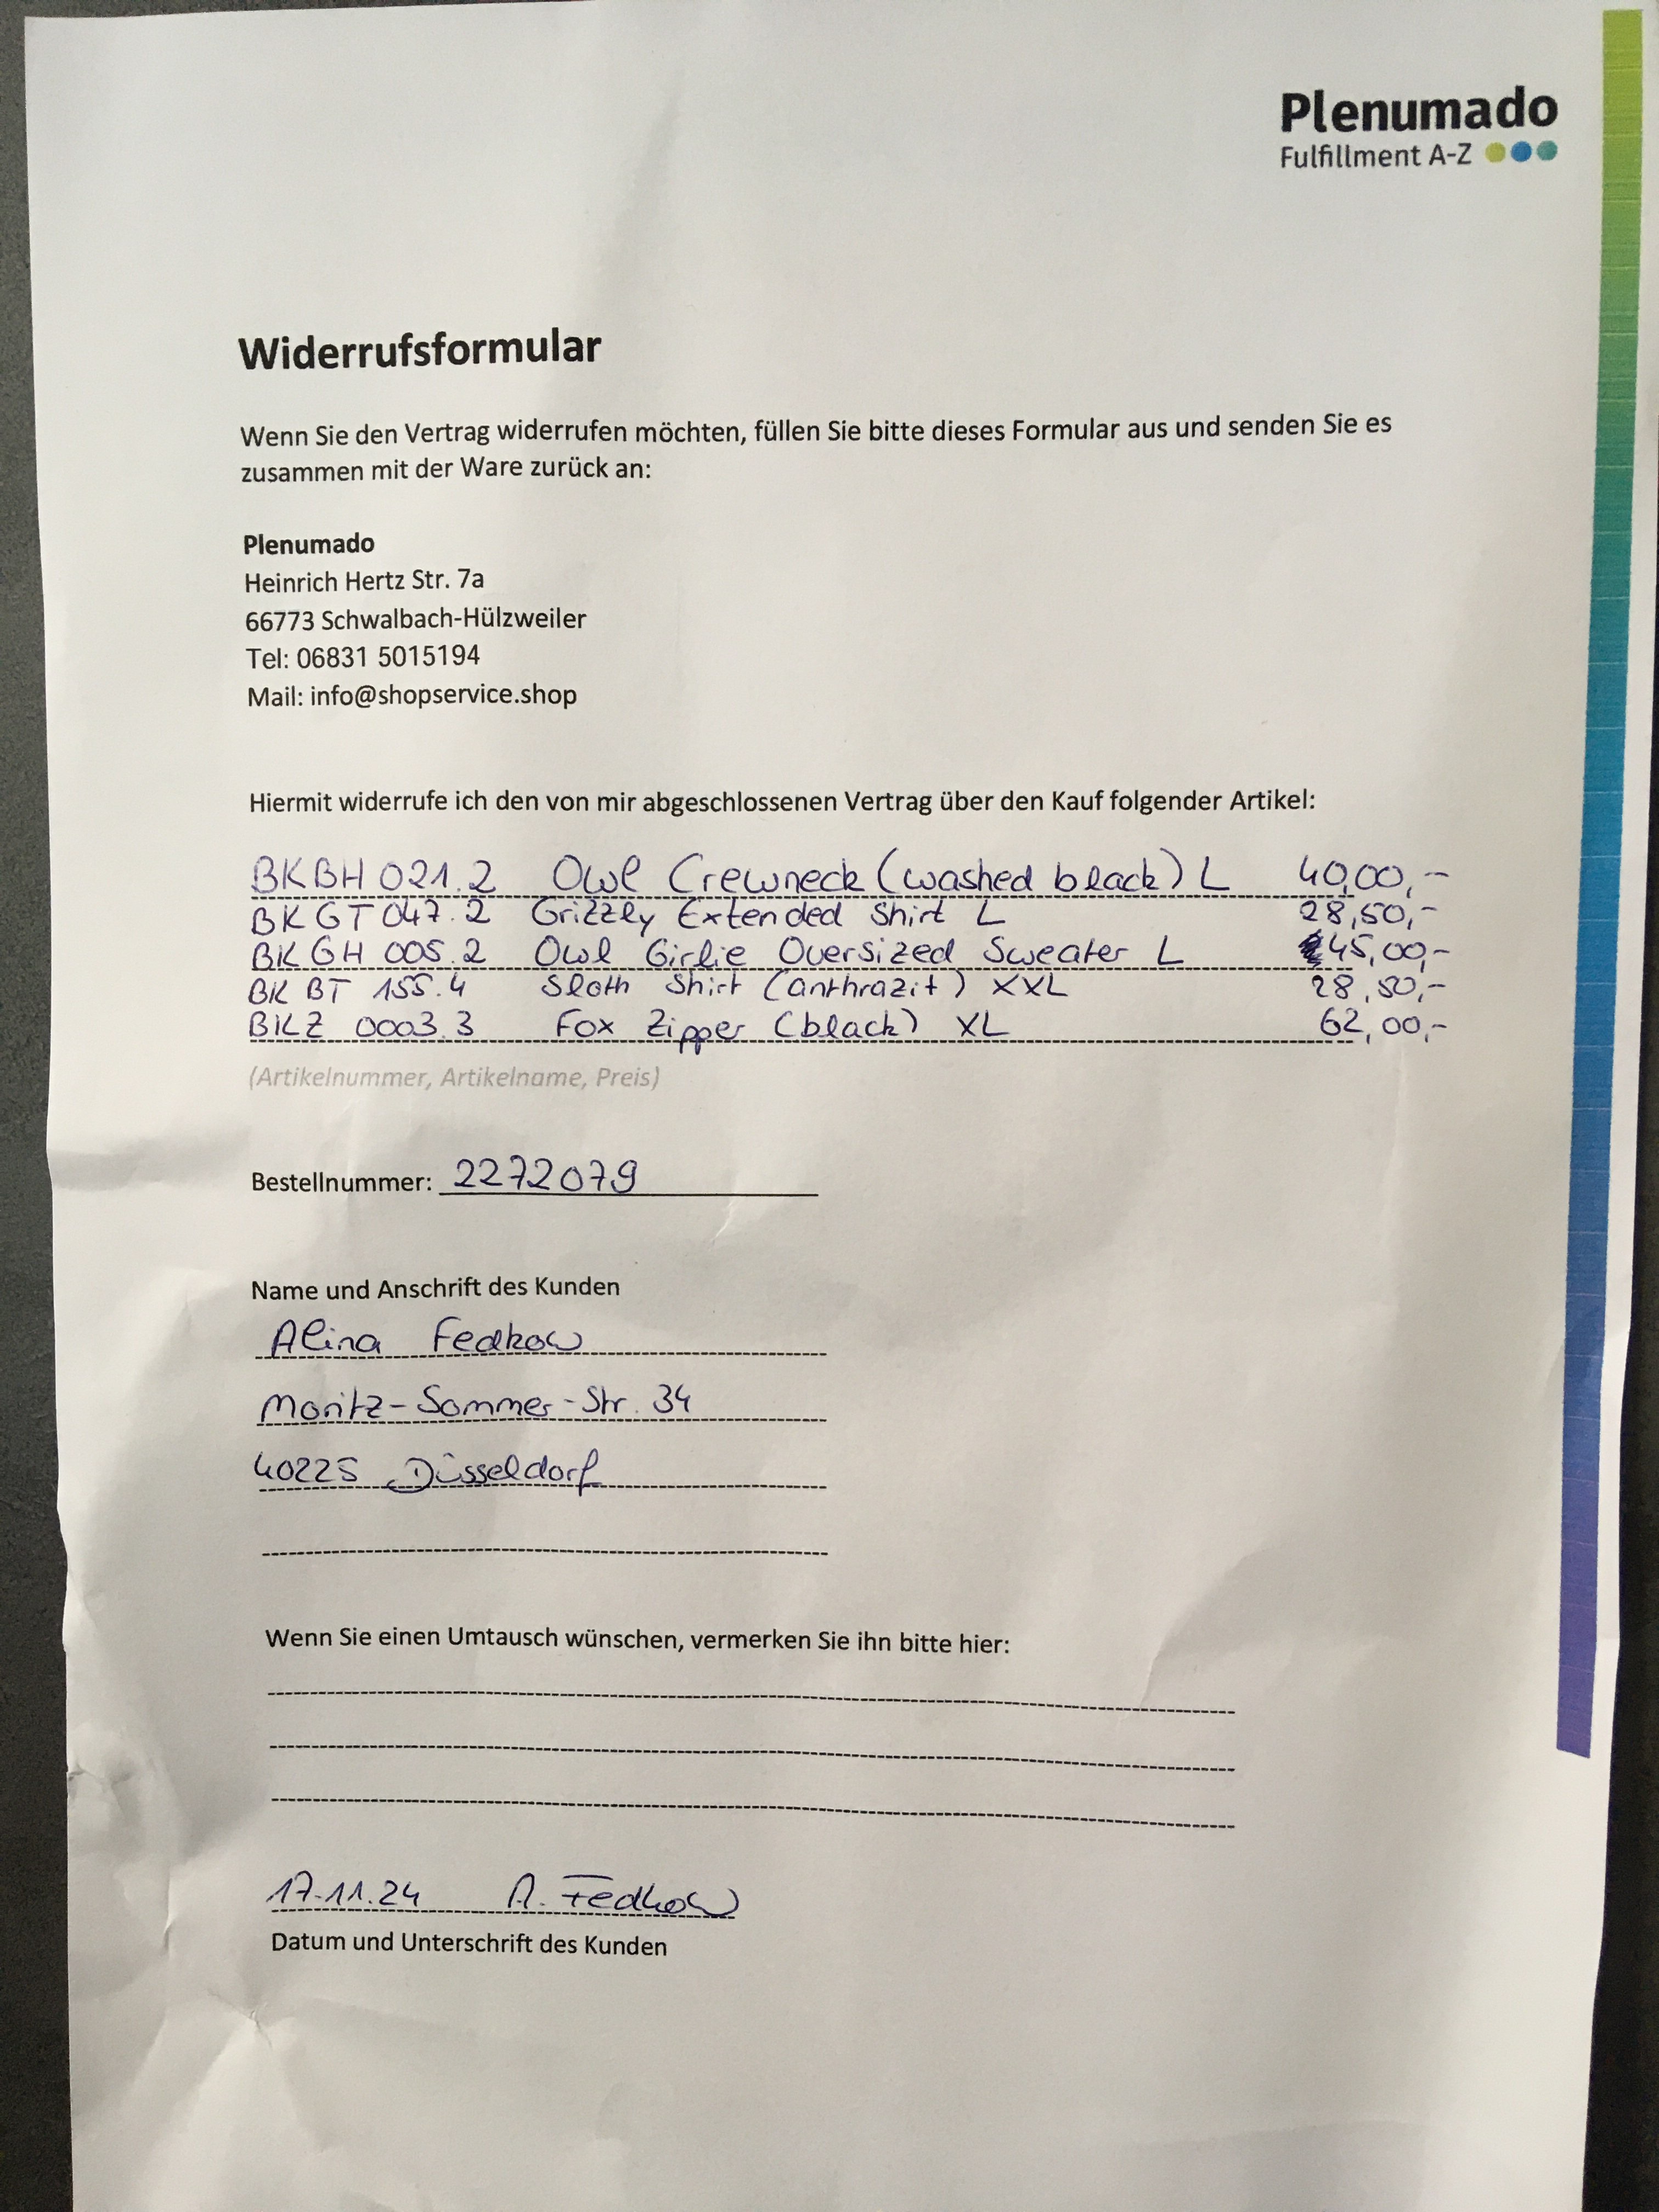 Plenumado
Fulfillment A-Z
Widerrufsformular
Wenn Sie den Vertrag widerrufen möchten, füllen Sie bitte dieses Formular aus und senden Sie es
zusammen mit der Ware zurück an:
Plenumado
Heinrich Hertz Str. 7a
66773 Schwalbach-Hülzweiler
Tel: 06831 5015194
Mail: info@shopservice.shop
Hiermit widerrufe ich den von mir abgeschlossenen Vertrag über den Kauf folgender Artikel:
BKBH 021.2 Owl Crewneck (washed black) L 40,00,-
BKGT 047.2 Grizzly Extended Shirt L 28,50,-
BKGH 005.2 Owl Girlie Oversized Sweater L 45,00,-
BKBT 155.4 Sloth Shirt (anthrazit) XXL 28,50,-
BKZ 0003.3 Fox Zipper (black) XL 62,00,-
(Artikelnummer, Artikelname, Preis)
Bestellnummer: 2272079
Name und Anschrift des Kunden
Alina Fedkow
Moritz-Sommer-Str. 34
40225 Düsseldorf
Wenn Sie einen Umtausch wünschen, vermerken Sie ihn bitte hier:
17.11.24 A. Fedkow
Datum und Unterschrift des Kunden